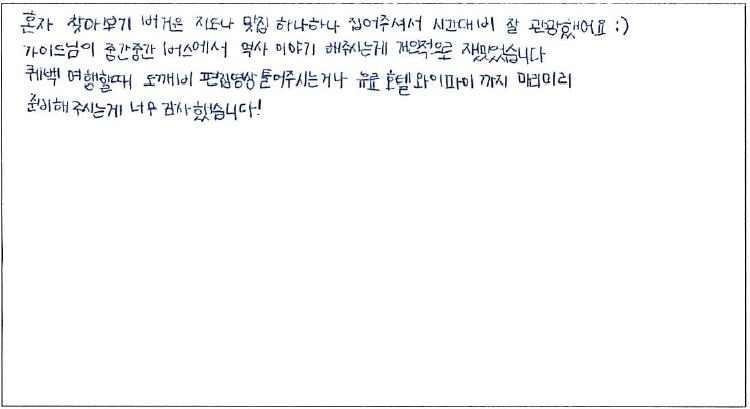 혼자 찾아보기 버거운 지도나 맛집 하나하나 집어주셔서 시간대비 잘 관광했어요 :)
가이드님이 중간중간 버스에서 역사 이야기 해주시는게 개인적으로 재밌었습니다
퀘백 여행할때 도깨비 편집영상 틀어주시는거나 유료 호텔 와이파이 까지 미리미리
준비해 주시는게 너무 감사했습니다!